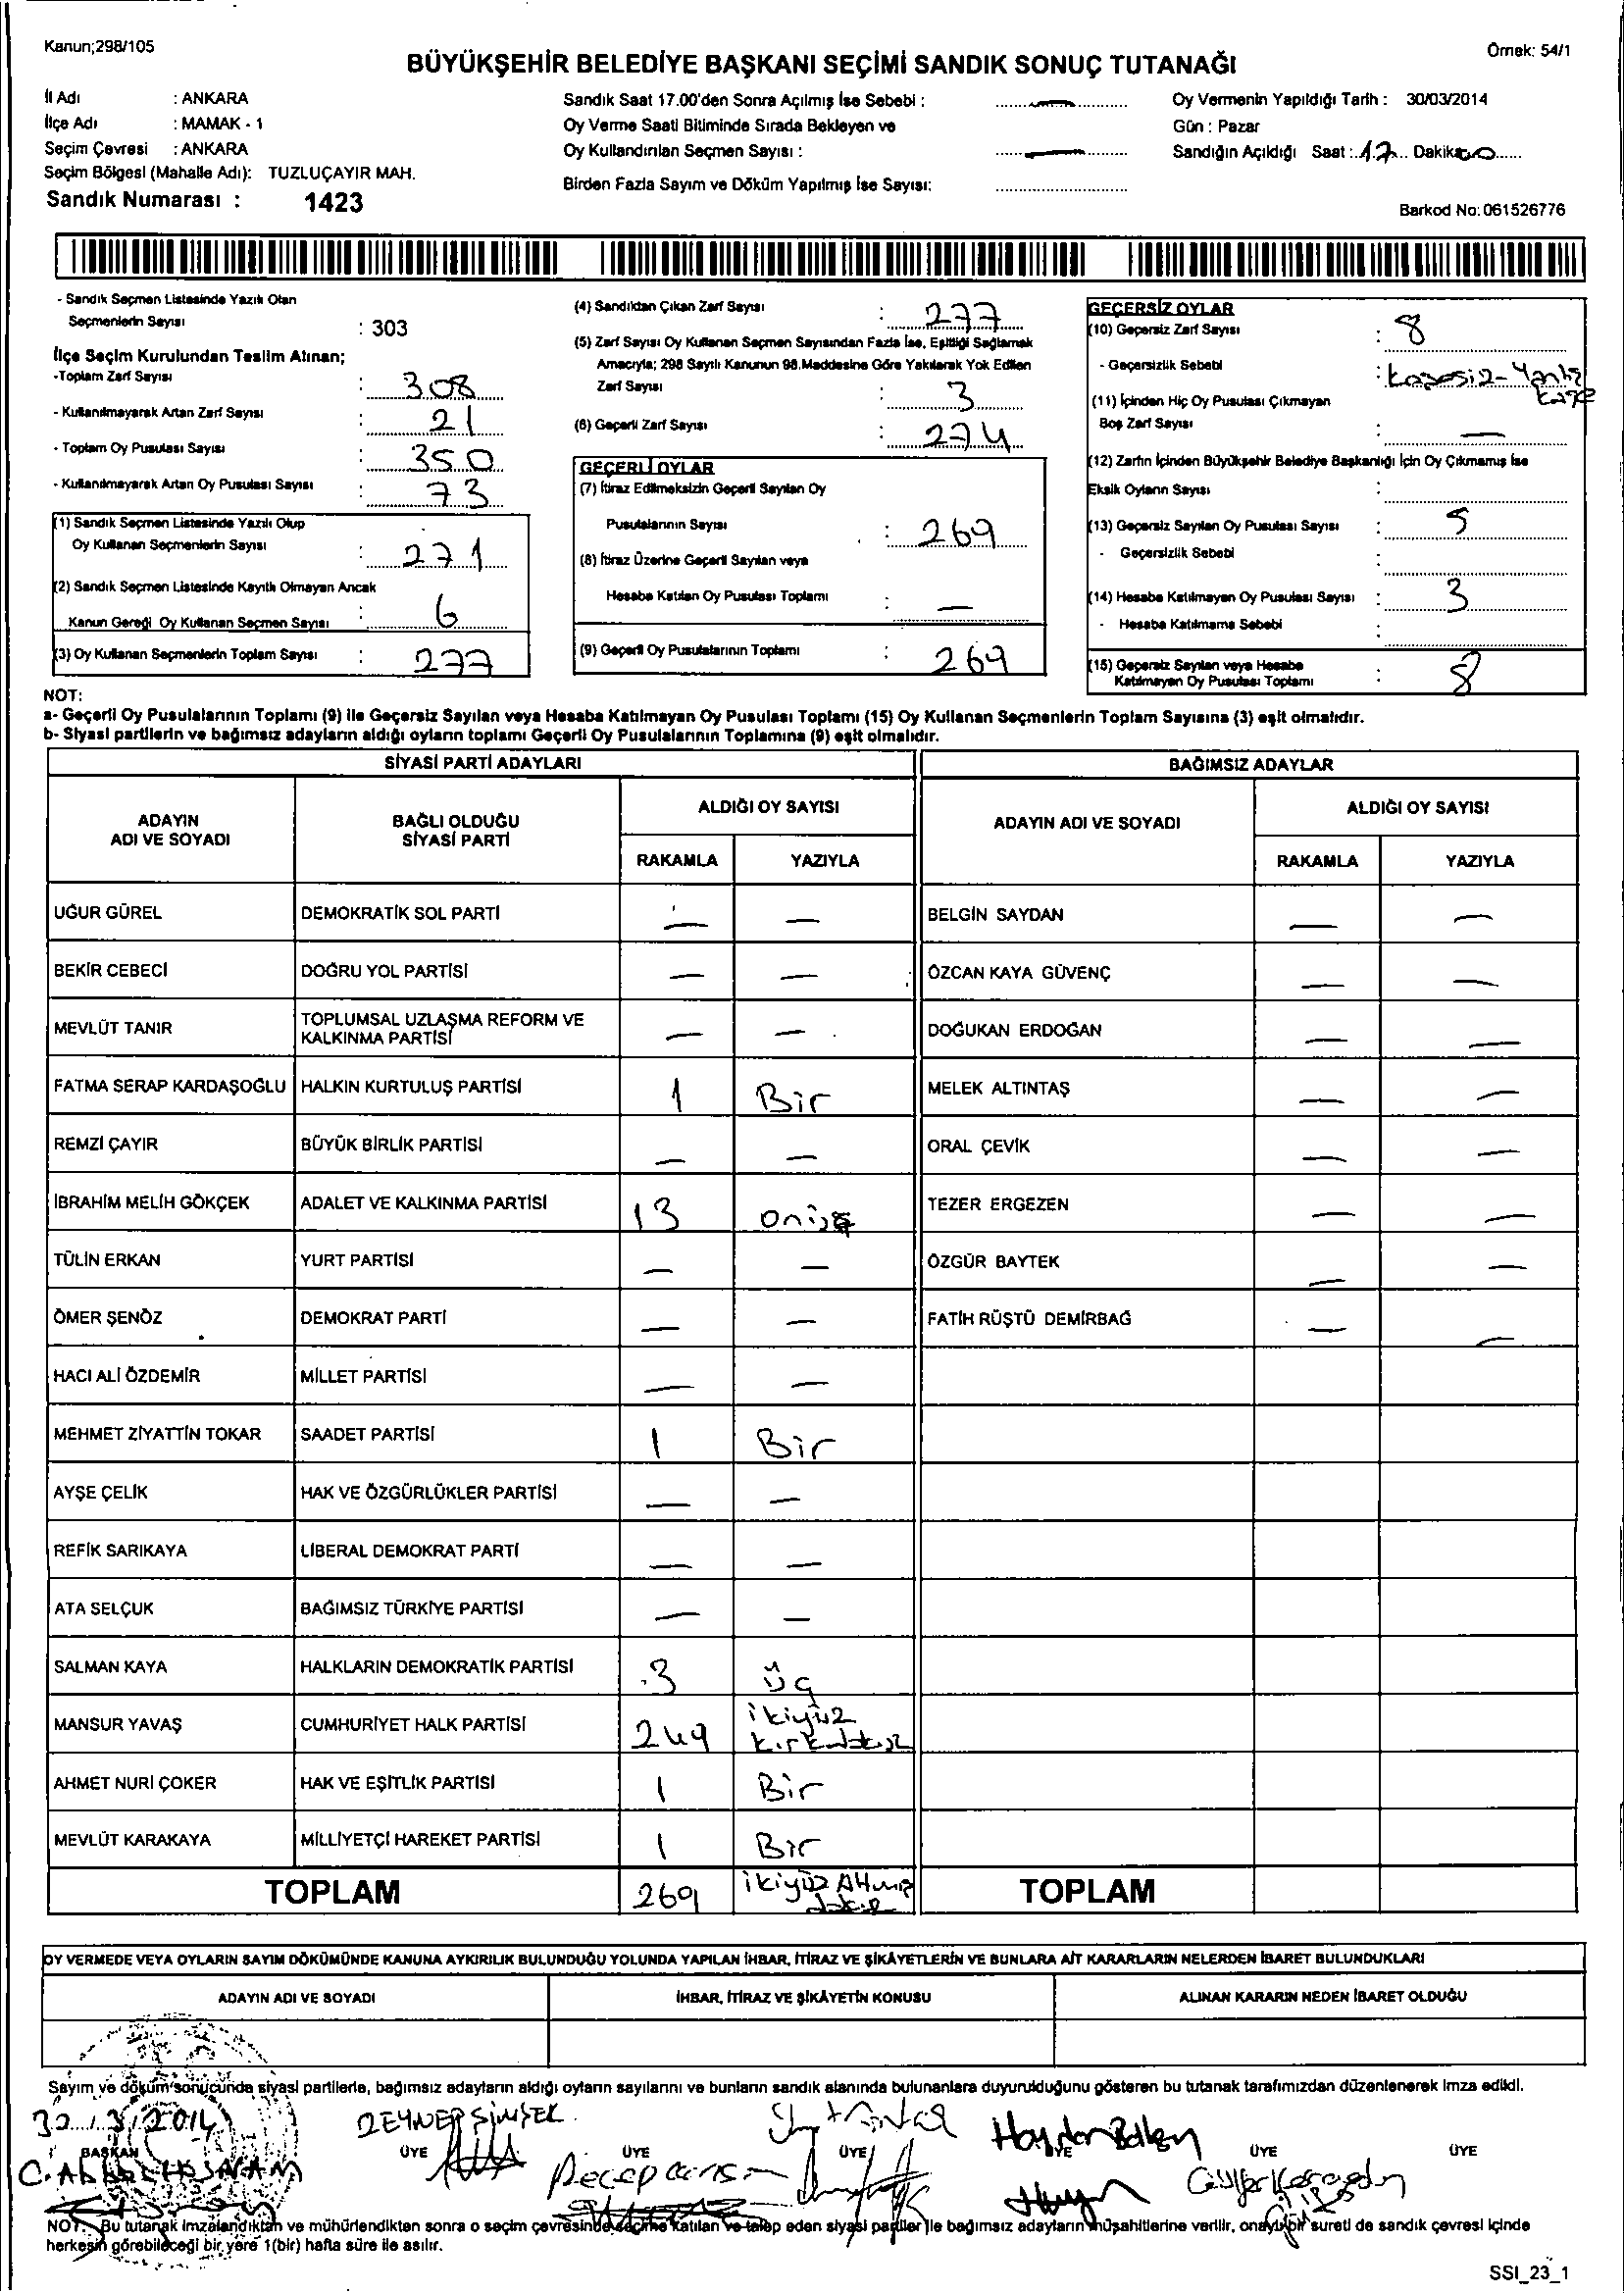 Kanun;298/105
Örnek: 54/1
BÜYÜKŞEHİR BELEDİYE BAŞKANI SEÇİMİ SANDIK SONUÇ TUTANAĞI
İl Adı : ANKARA
İlçe Adı : MAMAK - 1
Seçim Çevresi : ANKARA
Seçim Bölgesi (Mahalle Adı): TUZLUÇAYIR MAH.
Sandık Numarası : 1423
Sandık Saat 17.00'den Sonra Açılmış İse Sebebi : —
Oy Verme Saati Bitiminde Sırada Bekleyen ve
Oy Kullandırılan Seçmen Sayısı : —
Birden Fazla Sayım ve Döküm Yapılmış İse Sayısı:
Oy Vermenin Yapıldığı Tarih : 30/03/2014
Gün : Pazar
Sandığın Açıldığı Saat : 17 Dakika
Barkod No: 061526776
- Sandık Seçmen Listesinde Yazılı Olan
Seçmenlerin Sayısı : 303
İlçe Seçim Kurulundan Teslim Alınan;
-Toplam Zarf Sayısı : 308
- Kullanılmayarak Artan Zarf Sayısı : 21
- Toplam Oy Pusulası Sayısı : 350
- Kullanılmayarak Artan Oy Pusulası Sayısı : 73
(1) Sandık Seçmen Listesinde Yazılı Olup
Oy Kullanan Seçmenlerin Sayısı : 271
(2) Sandık Seçmen Listesinde Kayıtlı Olmayan Ancak
Kanun Gereği Oy Kullanan Seçmen Sayısı : 6
(3) Oy Kullanan Seçmenlerin Toplam Sayısı : 277
(4) Sandıktan Çıkan Zarf Sayısı : 277
(5) Zarf Sayısı Oy Kullanan Seçmen Sayısından Fazla İse, Eşitliği Sağlamak
Amacıyla; 298 Sayılı Kanunun 98.Maddesine Göre Yakılarak Yok Edilen
Zarf Sayısı : 3
(6) Geçerli Zarf Sayısı : 274
GEÇERLİ OYLAR
(7) İtiraz Edilmeksizin Geçerli Sayılan Oy
Pusulalarının Sayısı : 269
(8) İtiraz Üzerine Geçerli Sayılan veya
Hesaba Katılan Oy Pusulası Toplamı : —
(9) Geçerli Oy Pusulalarının Toplamı : 269
GEÇERSİZ OYLAR
(10) Geçersiz Zarf Sayısı : 8
- Geçersizlik Sebebi : kaşesiz-Yanlış
kaşe
(11) İçinden Hiç Oy Pusulası Çıkmayan
Boş Zarf Sayısı : —
(12) Zarfın İçinden Büyükşehir Belediye Başkanlığı İçin Oy Çıkmamış İse
Eksik Oyların Sayısı :
(13) Geçersiz Sayılan Oy Pusulası Sayısı : 5
- Geçersizlik Sebebi :
(14) Hesaba Katılmayan Oy Pusulası Sayısı : 3
- Hesaba Katılmama Sebebi :
(15) Geçersiz Sayılan veya Hesaba
Katılmayan Oy Pusulası Toplamı : 8
NOT:
a- Geçerli Oy Pusulalarının Toplamı (9) ile Geçersiz Sayılan veya Hesaba Katılmayan Oy Pusulası Toplamı (15) Oy Kullanan Seçmenlerin Toplam Sayısına (3) eşit olmalıdır.
b- Siyasi partilerin ve bağımsız adayların aldığı oyların toplamı Geçerli Oy Pusulalarının Toplamına (9) eşit olmalıdır.
SİYASİ PARTİ ADAYLARI
ADAYIN ADI VE SOYADI BAĞLI OLDUĞU SİYASİ PARTİ ALDIĞI OY SAYISI
RAKAMLA YAZIYLA
UĞUR GÜREL DEMOKRATİK SOL PARTİ — —
BEKİR CEBECİ DOĞRU YOL PARTİSİ — —
MEVLÜT TANIR TOPLUMSAL UZLAŞMA REFORM VE KALKINMA PARTİSİ — —
FATMA SERAP KARDAŞOĞLU HALKIN KURTULUŞ PARTİSİ 1 Bir
REMZİ ÇAYIR BÜYÜK BİRLİK PARTİSİ — —
İBRAHİM MELİH GÖKÇEK ADALET VE KALKINMA PARTİSİ 13 onüç
TÜLİN ERKAN YURT PARTİSİ — —
ÖMER ŞENÖZ DEMOKRAT PARTİ — —
HACI ALİ ÖZDEMİR MİLLET PARTİSİ — —
MEHMET ZİYATTİN TOKAR SAADET PARTİSİ 1 Bir
AYŞE ÇELİK HAK VE ÖZGÜRLÜKLER PARTİSİ — —
REFİK SARIKAYA LİBERAL DEMOKRAT PARTİ — —
ATA SELÇUK BAĞIMSIZ TÜRKİYE PARTİSİ — —
SALMAN KAYA HALKLARIN DEMOKRATİK PARTİSİ 3 üç
MANSUR YAVAŞ CUMHURİYET HALK PARTİSİ 249 ikiyüz kırkdokuz
AHMET NURİ ÇOKER HAK VE EŞİTLİK PARTİSİ 1 Bir
MEVLÜT KARAKAYA MİLLİYETÇİ HAREKET PARTİSİ 1 Bir
TOPLAM 269 ikiyüz
BAĞIMSIZ ADAYLAR
ADAYIN ADI VE SOYADI ALDIĞI OY SAYISI
RAKAMLA YAZIYLA
BELGİN SAYDAN — —
ÖZCAN KAYA GÜVENÇ — —
DOĞUKAN ERDOĞAN — —
MELEK ALTINTAŞ — —
ORAL ÇEVİK — —
TEZER ERGEZEN — —
ÖZGÜR BAYTEK — —
FATİH RÜŞTÜ DEMİRBAĞ — —
TOPLAM
OY VERMEDE VEYA OYLARIN SAYIM DÖKÜMÜNDE KANUNA AYKIRILIK BULUNDUĞU YOLUNDA YAPILAN İHBAR, İTİRAZ VE ŞİKÂYETLERİN VE BUNLARA AİT KARARLARIN NELERDEN İBARET BULUNDUKLARI
ADAYIN ADI VE SOYADI İHBAR, İTİRAZ VE ŞİKÂYETİN KONUSU ALINAN KARARIN NEDEN İBARET OLDUĞU
Sayım ve döküm sonucunda siyasi partilerle, bağımsız adayların aldığı oyların sayılarını ve bunların sandık alanında bulunanlara duyurulduğunu gösteren bu tutanak tarafımızdan düzenlenerek imza edildi.
3/2014 ZEYNEP ŞİMŞEK
BAŞKAN ÜYE ÜYE ÜYE ÜYE ÜYE ÜYE
Recep
NOT: Bu tutanak imzalandıktan ve mühürlendikten sonra o seçim çevresinde seçime katılan ve talep eden siyasi partiler ile bağımsız adayların müşahitlerine verilir, onaylı bir sureti de sandık çevresi içinde
herkesin görebileceği bir yere 1(bir) hafta süre ile asılır.
SSI_23_1